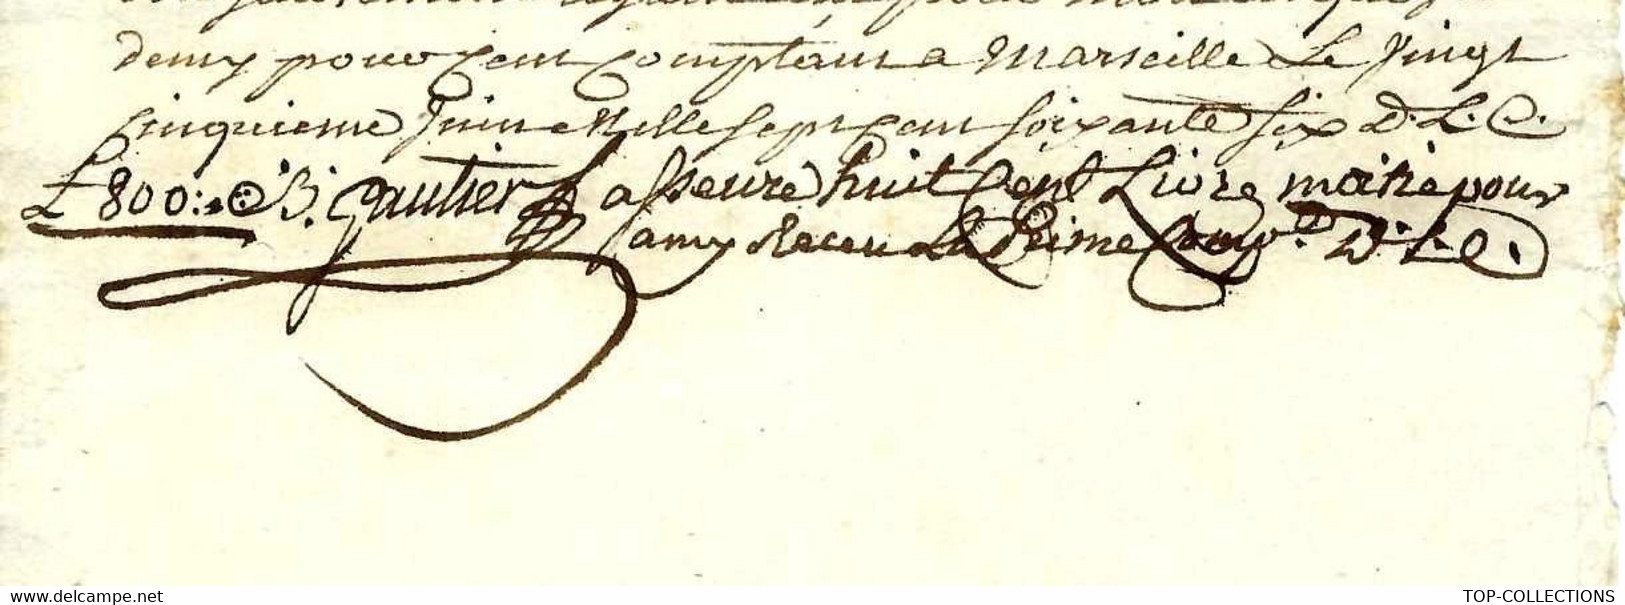 demy pour Cent Comptant a Marseille Le Vingt
Cinquieme Juin Mille sept cent soixante six D. L. C.
L 800:" B. gautier asseure huit Cent Livre moitie pour
amy Receu La Prime Comp.^t D. L. C.
162% (0,0) - (0,0)
TOP-COLLECTIONS